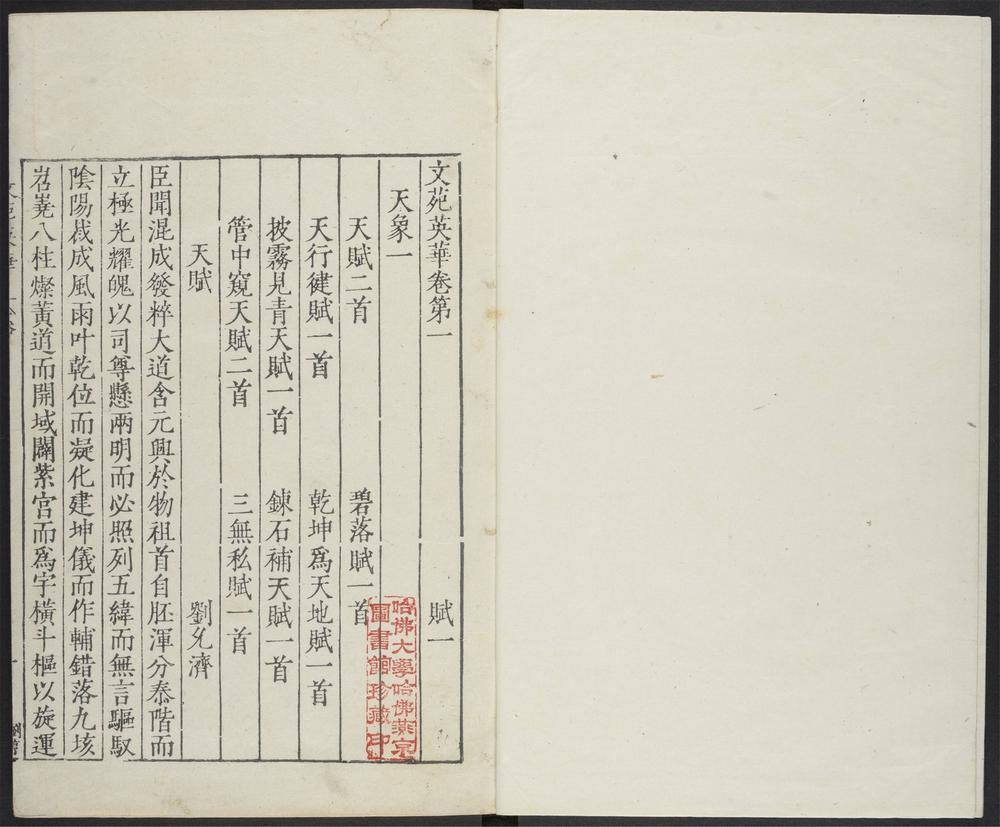 文苑英華卷第一 賦一
天象一
天賦二首 碧落賦一首
天行健賦一首 乾坤為天地賦一首
披霧見青天賦一首 鍊石補天賦一首
管中窺天賦二首 三無私賦一首
天賦 劉允濟
臣聞混成發粹大道含元興於物祖首自胚渾分泰階而
立極光耀魄以司尊懸兩明而必照列五緯而無言驅馭
陰陽裁成風雨叶乾位而凝化建坤儀而作輔錯落九垓
岧嶤八柱燦黃道而開域闢紫宮而為宇橫斗樞以旋運
哈佛大學哈佛燕京
圖書館珍藏印